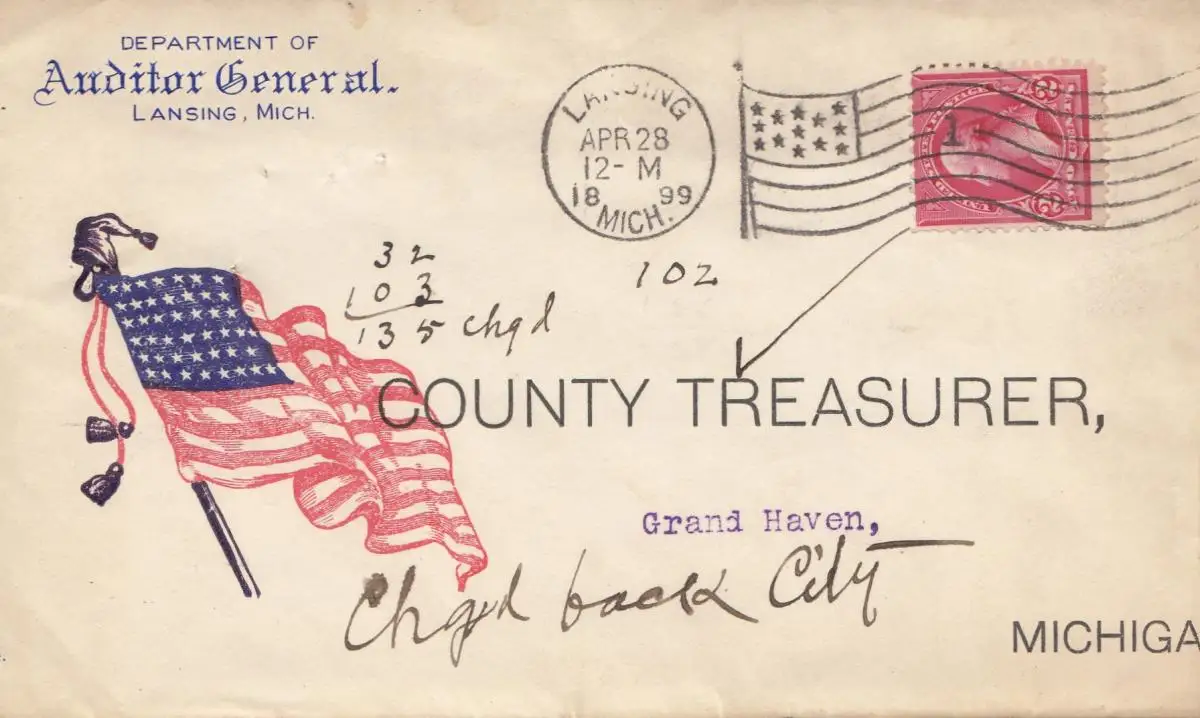 DEPARTMENT OF
Auditor General.
LANSING, MICH.
LANSING
APR 28
12- M
18 99
MICH.
1
2 2
32
103
135 chgd
102
COUNTY TREASURER,
Grand Haven,
Chgd back City
MICHIGA